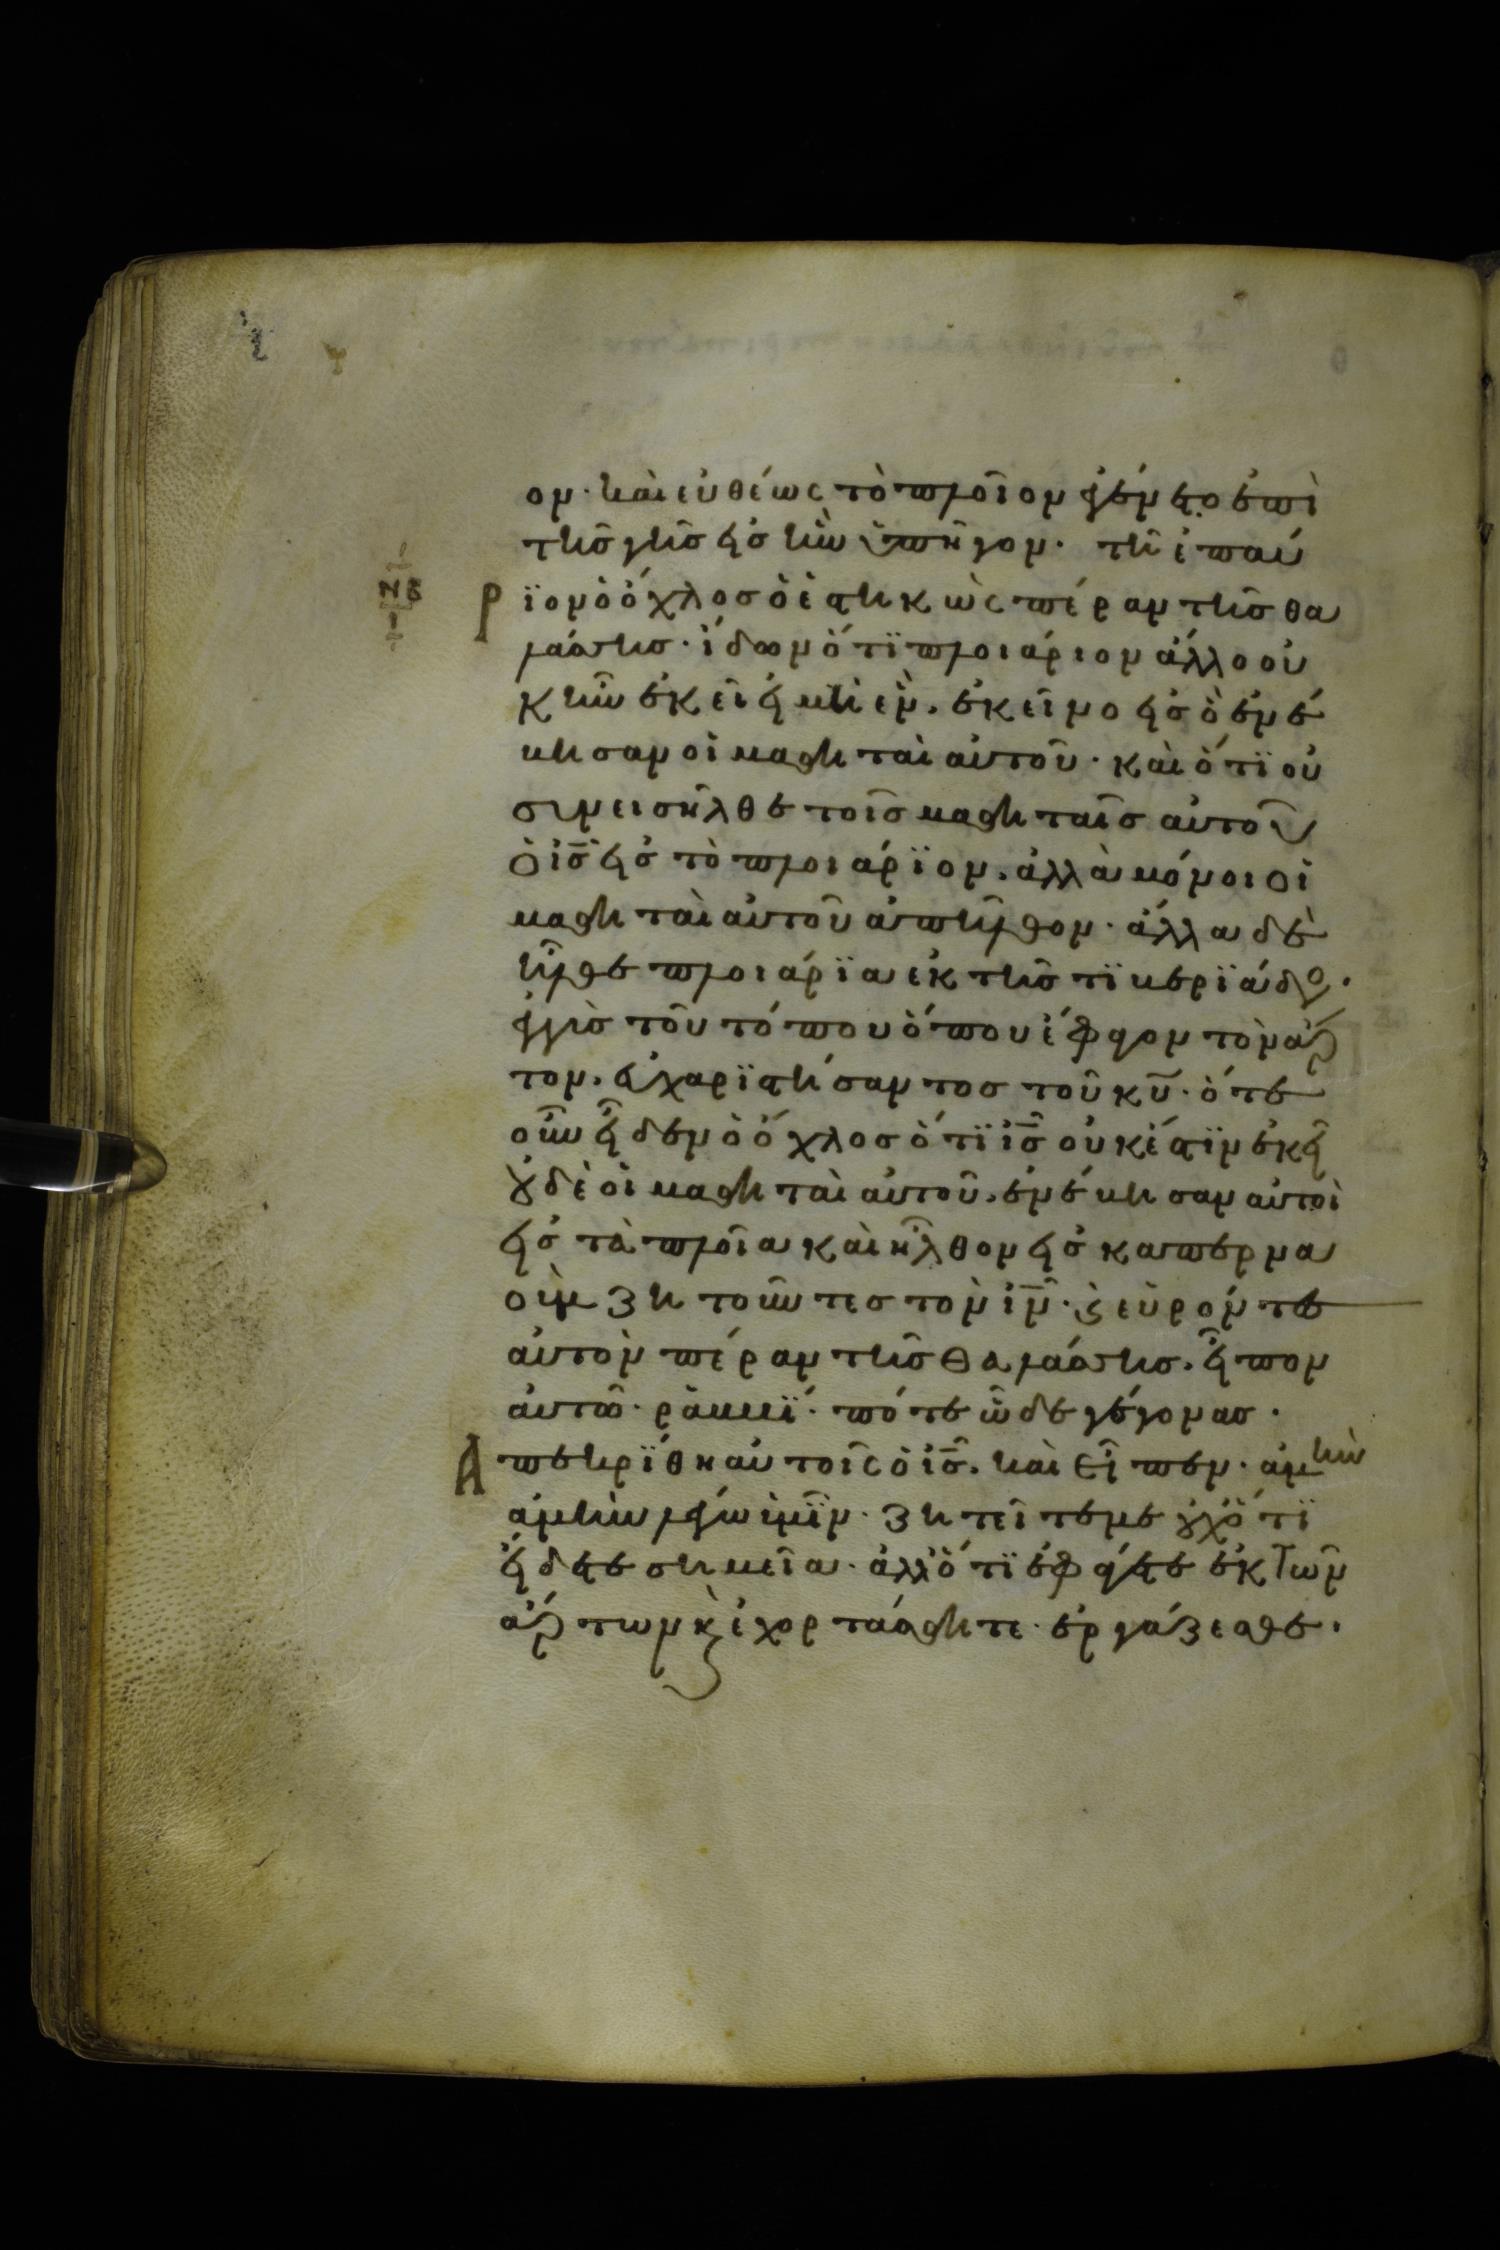 ον· καὶ εὐθέως τὸ πλοῖον ἐγένετο ἐπὶ
τῆς γῆς εἰς ἣν ὑπῆγον· τῆ ἐπαύ
ΝΒ
ι
ρϊον ὁ ὄχλος ὁ ἑστηκὼς πέραν τῆς θα
λάσσης· ἰδὼν ὅτϊ πλοιάριον ἄλλο οὐ
κ ἦν ἐκεῖ εἰ μὴ ἓν. ἐκεῖνο εἰς ὃ ἐνέ
βησαν οἱ μαθηταὶ αὐτοῦ· καὶ ὅτϊ οὐ
συνεισῆλθε τοῖς μαθηταῖς αὐτοῦ
ὁ ι̅ς̅ εἰς τὸ πλοιάρϊον. ἀλλὰ μόνοι οἱ
μαθηταὶ αὐτοῦ ἀπῆλθον· ἄλλα δὲ
ἦλθε πλοιάρϊα ἐκ τῆς τϊβερϊάδος.
ἐγγὺς τοῦ τόπου ὅπου ἔφαγον τὸν ἄρ
τον. εὐχαρϊστήσαντος τοῦ κ̅υ̅· ὅτε
οὖν εἶδεν ὁ ὄχλος ὅτϊ ι̅ς̅ οὐκ ἔστϊν ἐκεῖ
οὐδὲ οἱ μαθηταὶ αὐτοῦ. ἐνέβησαν αὐτοὶ
εἰς τὰ πλοῖα καὶ ἦλθον εἰς καπερνα
οὺμ ζητοῦντες τὸν ι̅ν̅· καὶ εὑρόντες
αὐτὸν πέραν τῆς θαλάσσης. εἶπον
αὐτῶ· ῥαββΐ· πότε ὧδε γέγονας·
Ἀπεκρΐθη αὐτοῖς ὁ ι̅ς̅. καὶ εἶπεν· ἀμὴν
ἀμὴν λέγω ὑμῖν· ζητεῖτέ με οὐχ ὅτϊ
εἴδετε σημεῖα· ἀλλ' ὅτϊ ἐφάγετε ἐκ τῶν
ἄρτων κ̀ ἐχορτάσθητε· ἐργάζεσθε.